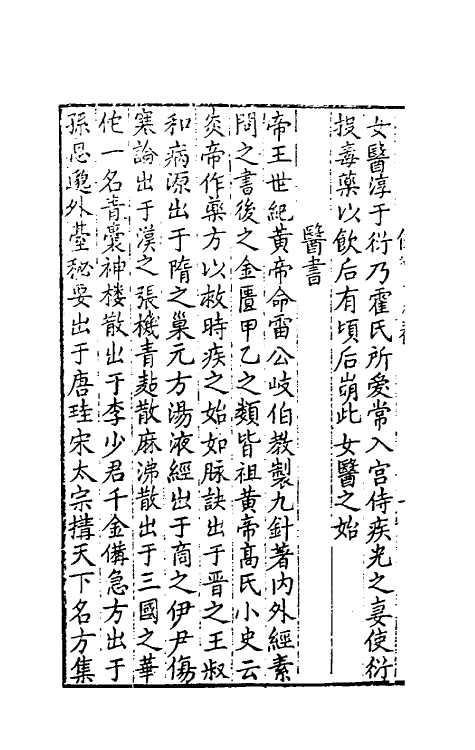 女醫淳于衍乃霍氏所愛常入宮侍疾光之妻使衍
投毒藥以飲后有頃后崩此女醫之始
醫書
帝王世紀黃帝命雷公歧伯教製九針著內外經素
問之書後之金匱甲乙之類皆祖黃帝高氏小史云
炎帝作藥方以救時疾之始如脉訣出于晋之王叔
和病源出于隋之巢元方湯液經出于商之伊尹傷
寒論出于漢之張機青黏散麻沸散出于三國之華
佗一名青囊神楼散出于李少君千金備急方出于
孫思邈外臺秘要出于唐珪宋太宗搆天下名方集